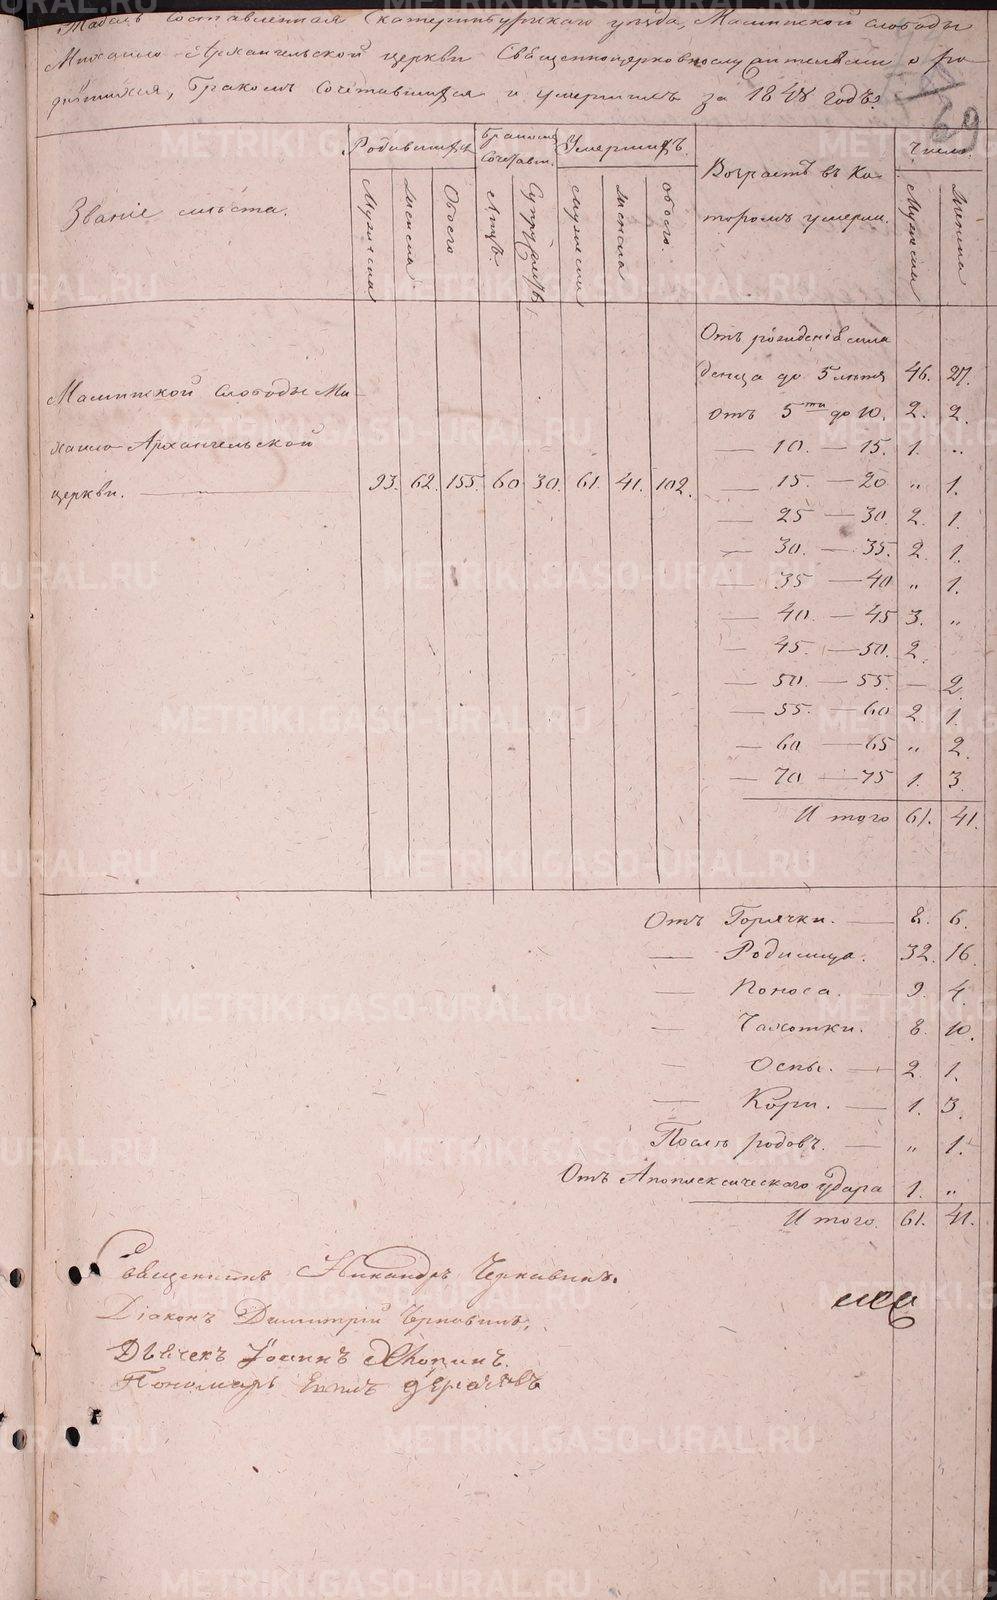 Табель составленная Екатеринбургскаго уезда, Маминской слободы
Михаило-Архангельской церкви Священноцерковнослужителями о ро
дившихся, бракомъ сочетавшихся и умершихъ за 1848 годъ.
69
Званіе места.
Родившихся
Бракомъ сочетавш.
Умершихъ.
Возрастъ въ ко-
торомъ умерли.
Число.
Мужеска Женска Обоего Лицъ. Супружествъ Мужеска Женска обоего. Мужеска Женска
Маминской слободы Ми-
хаило-Архангельской
церкви. — 93. 62. 155. 60 30. 61. 41. 102.
Отъ рожденія мла
денца до 5 летъ 46. 27.
Отъ 5ти до 10. 2. 2.
— 10. — 15. 1. "
— 15. — 20 " 1.
— 25 — 30. 2. 1.
— 30. — 35. 2. 1.
— 35 — 40 " 1.
— 40. — 45 3. "
— 45. — 50. 2.
— 50. — 55. — 2.
— 55. — 60 2. 1.
— 60 — 65 " 2.
— 70 — 75 1. 3.
И того 61. 41.
Отъ Горячки. — 8. 6.
— Родимца. 32. 16.
— Поноса. 9. 4.
— Чахотки. 8. 10.
— Оспы. — 2. 1.
— Кори. — 1. 3.
После родовъ. — " 1.
Отъ Апоплексическаго удара 1. "
И того. 61. 41.
Священникъ Никандръ
Діаконъ Димитрій
Дьячекъ Іоаннъ
Пономарь
METRIKI.GASO-URAL.RU